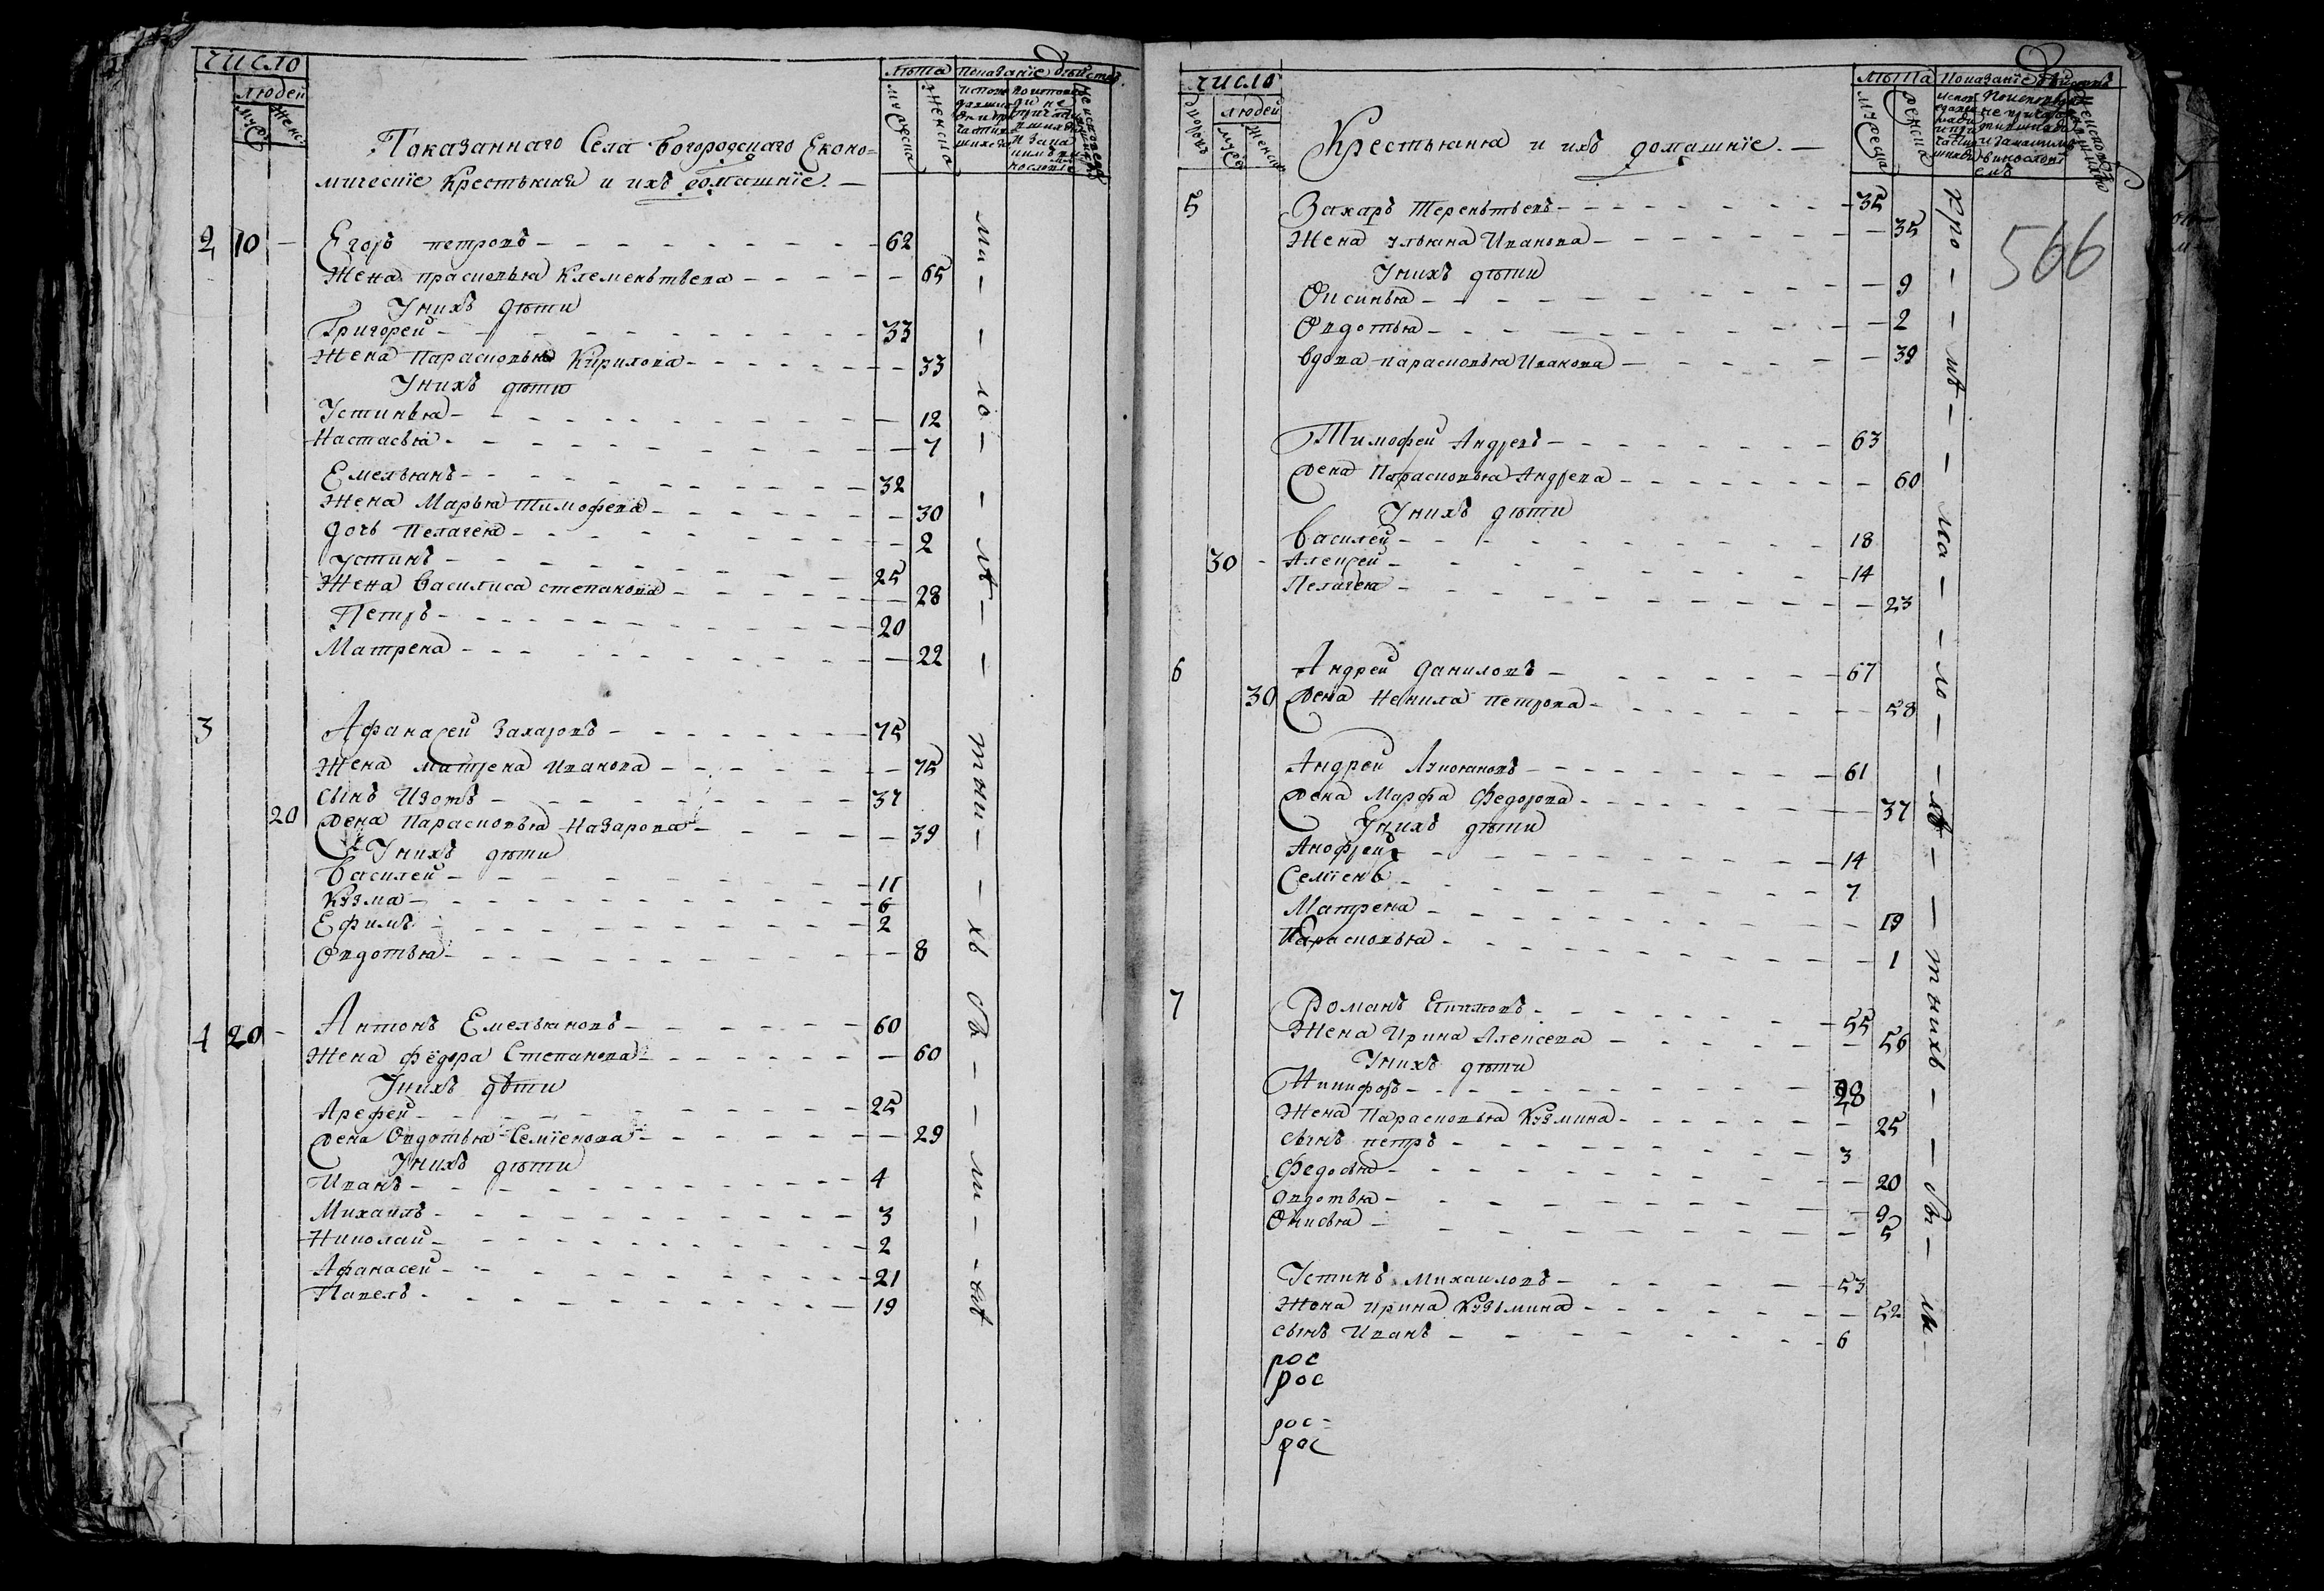 число
людей
мужс женс
лѣта
мужеска
женска
показанїе дѣйства
Показаннаго Села богородскаго Еконо=
мическїе Крестьяня и ихъ домашнїе. —
2 10 — Егоръ петровъ — 62
Жена прасковья Клеменьтьева — 65
Унихъ дѣти
Григорей — 33
Жена Парасковья Кирилова — 33
Унихъ дѣти
Устинья — 12
Настасья — 7
Емельянъ — 32
Жена Марья тимофева — 30
дочь пелагея — 2
устинъ — 25
Жена василиса степанова — 28
Петръ — 20
Матрена — 22
3 Афанасей Захаровъ — 75
Жена матрена Иванова — 75
сынъ Изотъ — 37
20 Жена Парасковья Назарова — 39
Унихъ дѣти
василей — 11
Кузма — 6
Ефимъ — 2
Овдотья — 8
4 20 — Антонъ Емельяновъ — 60
Жена федора Степанова — 60
Унихъ дѣти
Арефей — 25
Жена Овдотья Семїенова — 29
Унихъ дѣти
Иванъ — 4
Михаилъ — 3
Николай — 2
Афанасей — 21
Павелъ — 19
число
дворовъ
людей
мужс женск
лѣта
мужеска
женска
Показанїе дѣйства
Крестьяня и ихъ домашнїе. —
566
5 Захаръ Тереньтьевъ — 35
Жена ульяна Иванова — 35
Унихъ дѣти
Оксинья — 9
Овдотья — 2
вдова парасковья Иванова — 39
Тимофей Андревъ — 63
Жена Парасковья Андрева — 60
Унихъ дѣти
василей — 18
30 — Алексей — 14
Пелагея — 23
6 Андрей даниловъ — 67
30 Жена Ненила петрова — 58
Андрей Лукояновъ — 61
Жена Марфа Федорова — 37
Унихъ дѣти
Анофрей — 14
Семїенъ — 7
Матрена — 19
Парасковья — 1
7 Романъ Екимовъ — 55
Жена Ирина Алексева — 56
Унихъ дѣти
Никифоръ — 28
Жена Парасковья Кузмина — 25
сынъ петръ — 3
Федосья — 20
овдотья — 9
Онисья — 5
Устинъ Михаиловъ — 53
Жена ирина Кузьмина — 52
сынъ Иванъ — 6
рос
рос
рос =
рос